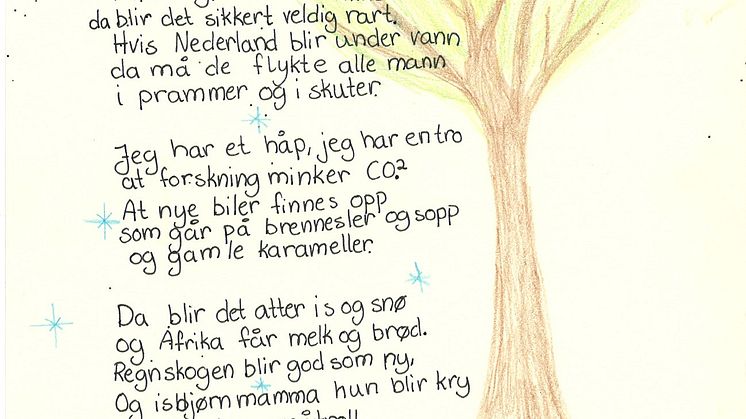 da blir det sikkert veldig rart.
Hvis Nederland blir under vann
da må de flykte alle mann
i prammer og i skuter.
Jeg har et håp, jeg har en tro
at forskning minker CO.²
At nye biler finnes opp
som går på brennesler og sopp
og gamle karameller.
Da blir det atter is og snø
og Afrika får melk og brød.
Regnskogen blir god som ny,
Og isbjørnmamma hun blir kry